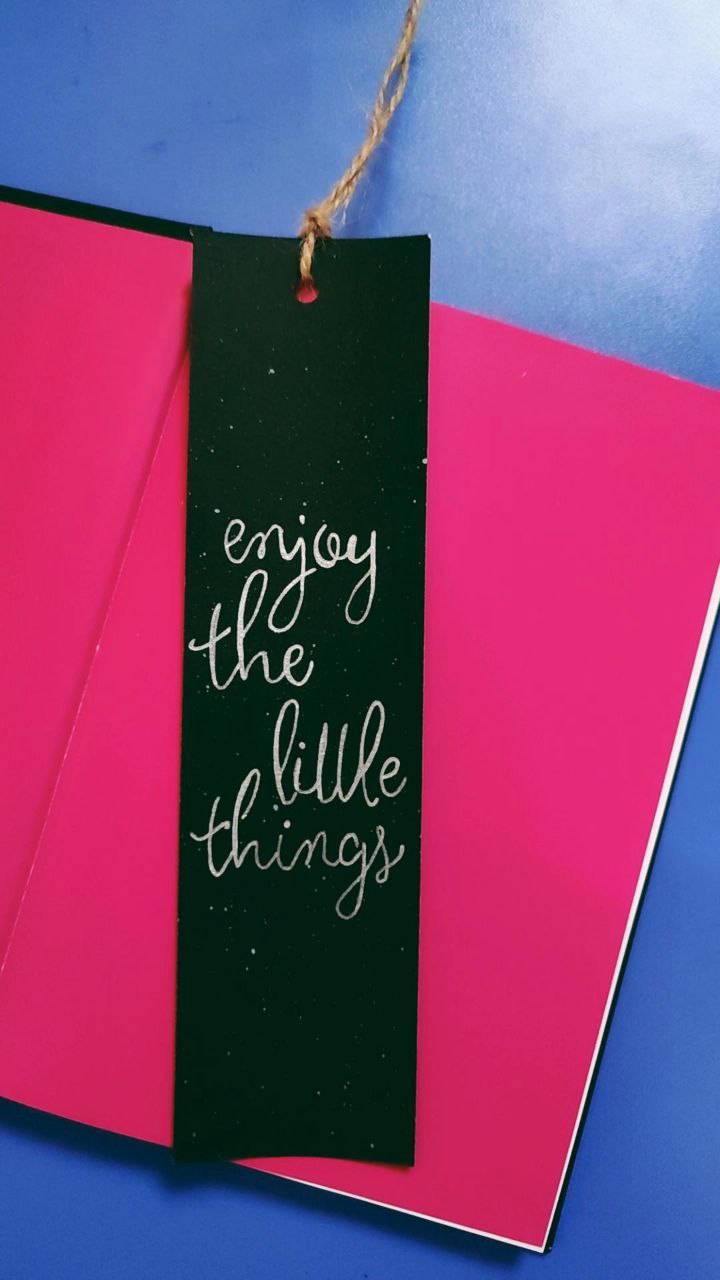 enjoy
the
little
things